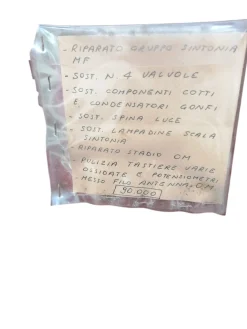 - RIPARATO GRUPPO SINTONIA
MF
- SOST. N. 4 VALVOLE
- SOST. COMPONENTI COTTI
E CONDENSATORI GONFI
- SOST. SPINA LUCE
- SOST. LAMPADINE SCALA
SINTONIA
- RIPARATO STADIO OM
- PULIZIA TASTIERE VARIE
OSSIDATE E POTENZIOMETRI
- MESSO FILO ANTENNA O.M.
90.000